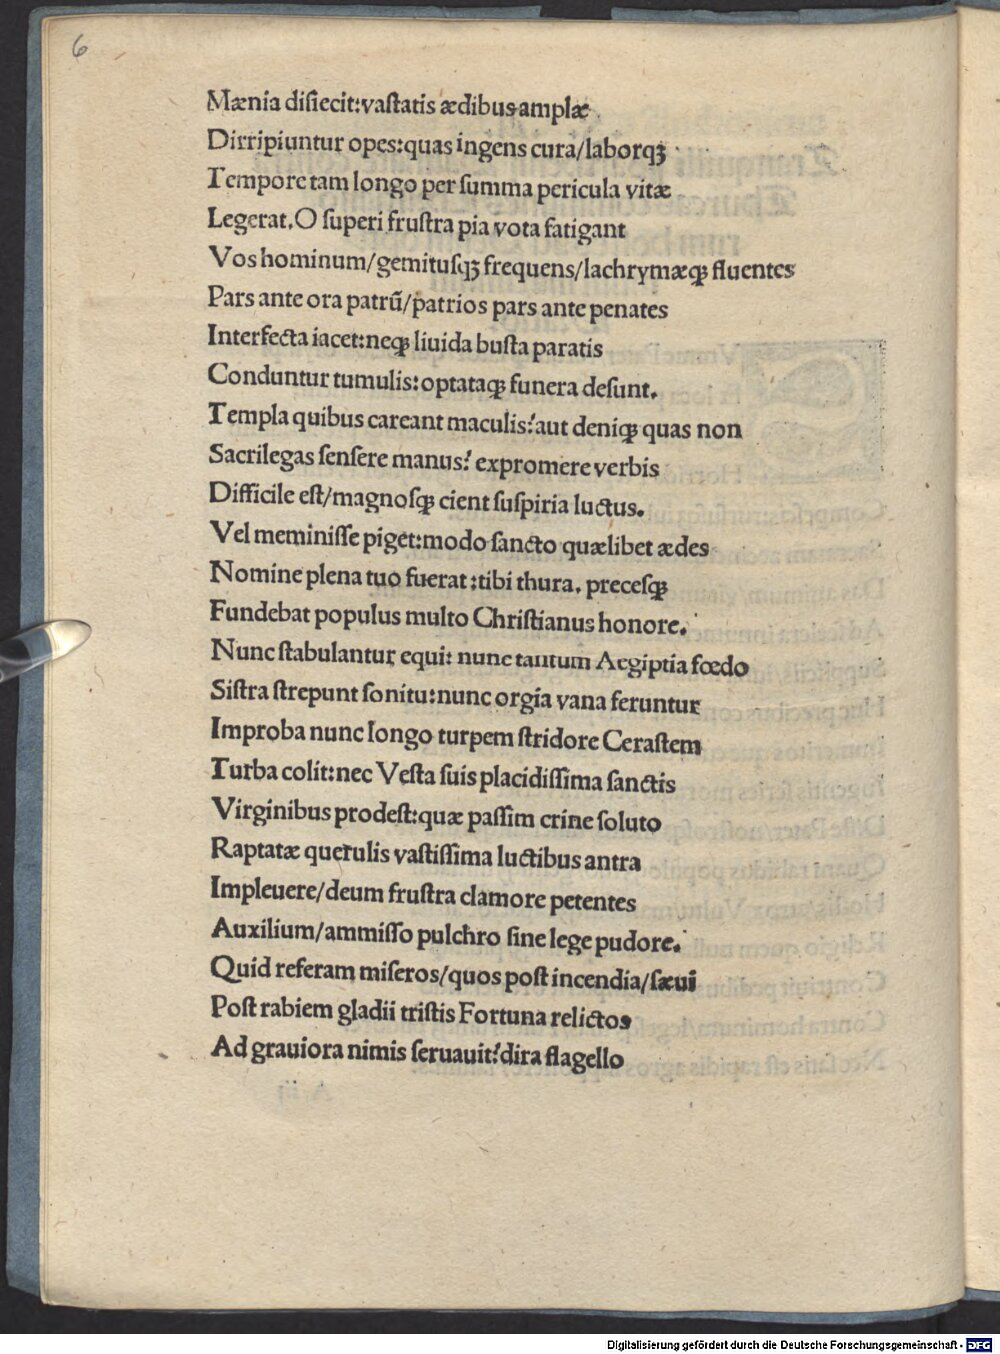 6
Mænia disiecit:vaſtatis ædibus amplæ
Dirripiuntur opes:quas ingens cura/laborqꝫ
Tempore tam longo per ſumma pericula vitæ
Legerat.O ſuperi fruſtra pia vota fatigant
Vos hominum/gemituſqꝫ frequens/lachrymæqꝫ fluentes
Pars ante ora patrū/patrios pars ante penates
Interfecta iacet:neqꝫ liuida buſta paratis
Conduntur tumulis:optataqꝫ funera deſunt.
Templa quibus careant maculis?aut deniqꝫ quas non
Sacrilegas ſenſere manus? expromere verbis
Difficile eſt/magnoſqꝫ cient ſuſpiria luctus.
Vel meminiſſe piget:modo ſancto quælibet ædes
Nomine plena tuo fuerat:tibi thura. preceſqꝫ
Fundebat populus multo Chriſtianus honore.
Nunc ſtabulantur equi: nunc tantum Aegiptia fœdo
Siſtra ſtrepunt ſonitu:nunc orgia vana feruntur
Improba nunc longo turpem ſtridore Ceraſtem
Turba colit:nec Veſta ſuis placidiſſima ſanctis
Virginibus prodeſt:quæ paſſim crine ſoluto
Raptatæ querulis vaſtiſſima luctibus antra
Impleuere/deum fruſtra clamore petentes
Auxilium/ammiſſo pulchro ſine lege pudore.
Quid referam miſeros/quos poſt incendia/ſæui
Poſt rabiem gladii triſtis Fortuna relictos
Ad grauiora nimis ſeruauit?dira flagello
Digitalisierung gefördert durch die Deutsche Forschungsgemeinschaft - DFG